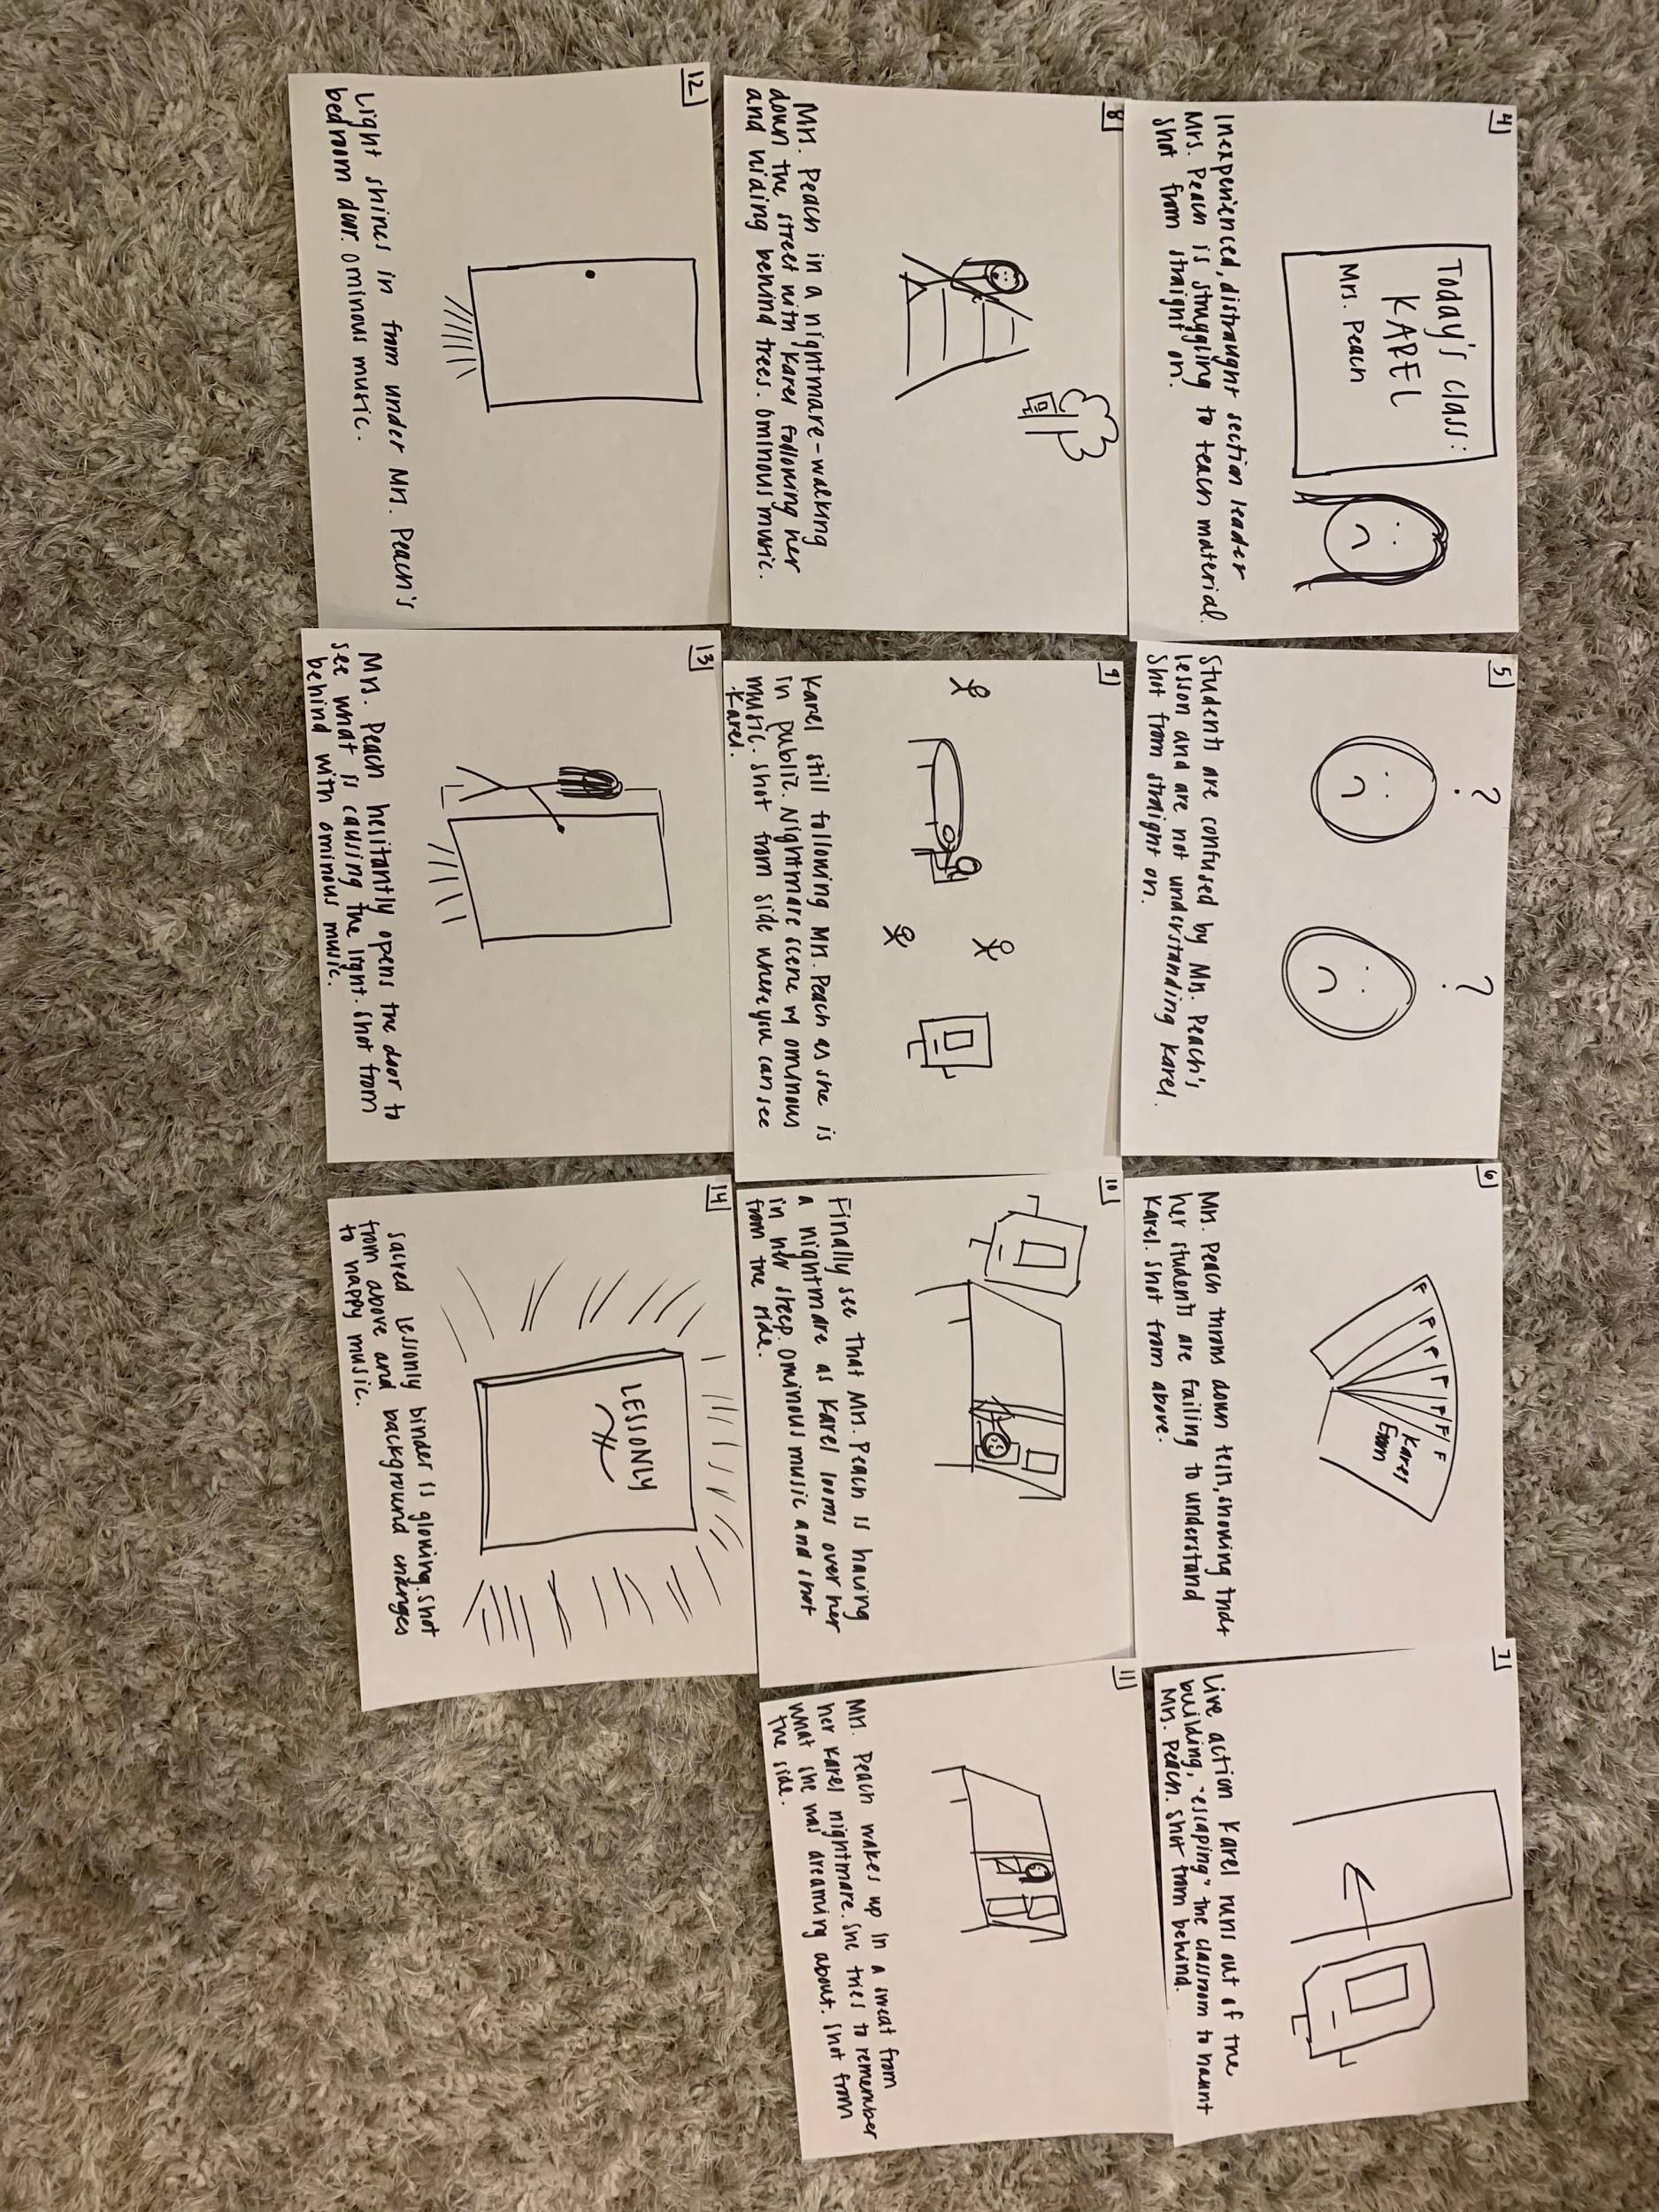 4
Today's class:
KAREL
Mrs. Peach
Inexperienced, distraught section leader
Mrs. Peach is struggling to teach material.
Shot from straight on.
5
? ?
Students are confused by Mrs. Peach's
lesson and are not understanding Karel.
Shot from straight on.
6
F F F F F F
Karel
Exam
Mrs. Peach throws down tests, showing that
her students are failing to understand
Karel. Shot from above.
7
Live action Karel runs out of the
building, "escaping" the classroom to haunt
Mrs. Peach. Shot from behind.
8
Mrs. Peach in a nightmare-walking
down the street with Karel following her
and hiding behind trees. Ominous music.
9
Karel still following Mrs. Peach as she is
in public. Nightmare scene w ominous
music. Shot from side where you can see
Karel.
10
Finally see that Mrs. Peach is having
a nightmare as Karel looms over her
in her sleep. Ominous music and shot
from the side.
11
Mrs. Peach wakes up in a sweat from
her Karel nightmare. She tries to remember
what she was dreaming about. Shot from
the side.
12
Light shines in from under Mrs. Peach's
bedroom door. Ominous music.
13
Mrs. Peach hesitantly opens the door to
see what is causing the light. Shot from
behind with ominous music.
14
LESSONLY
Sacred lessonly binder is glowing. Shot
from above and background changes
to happy music.